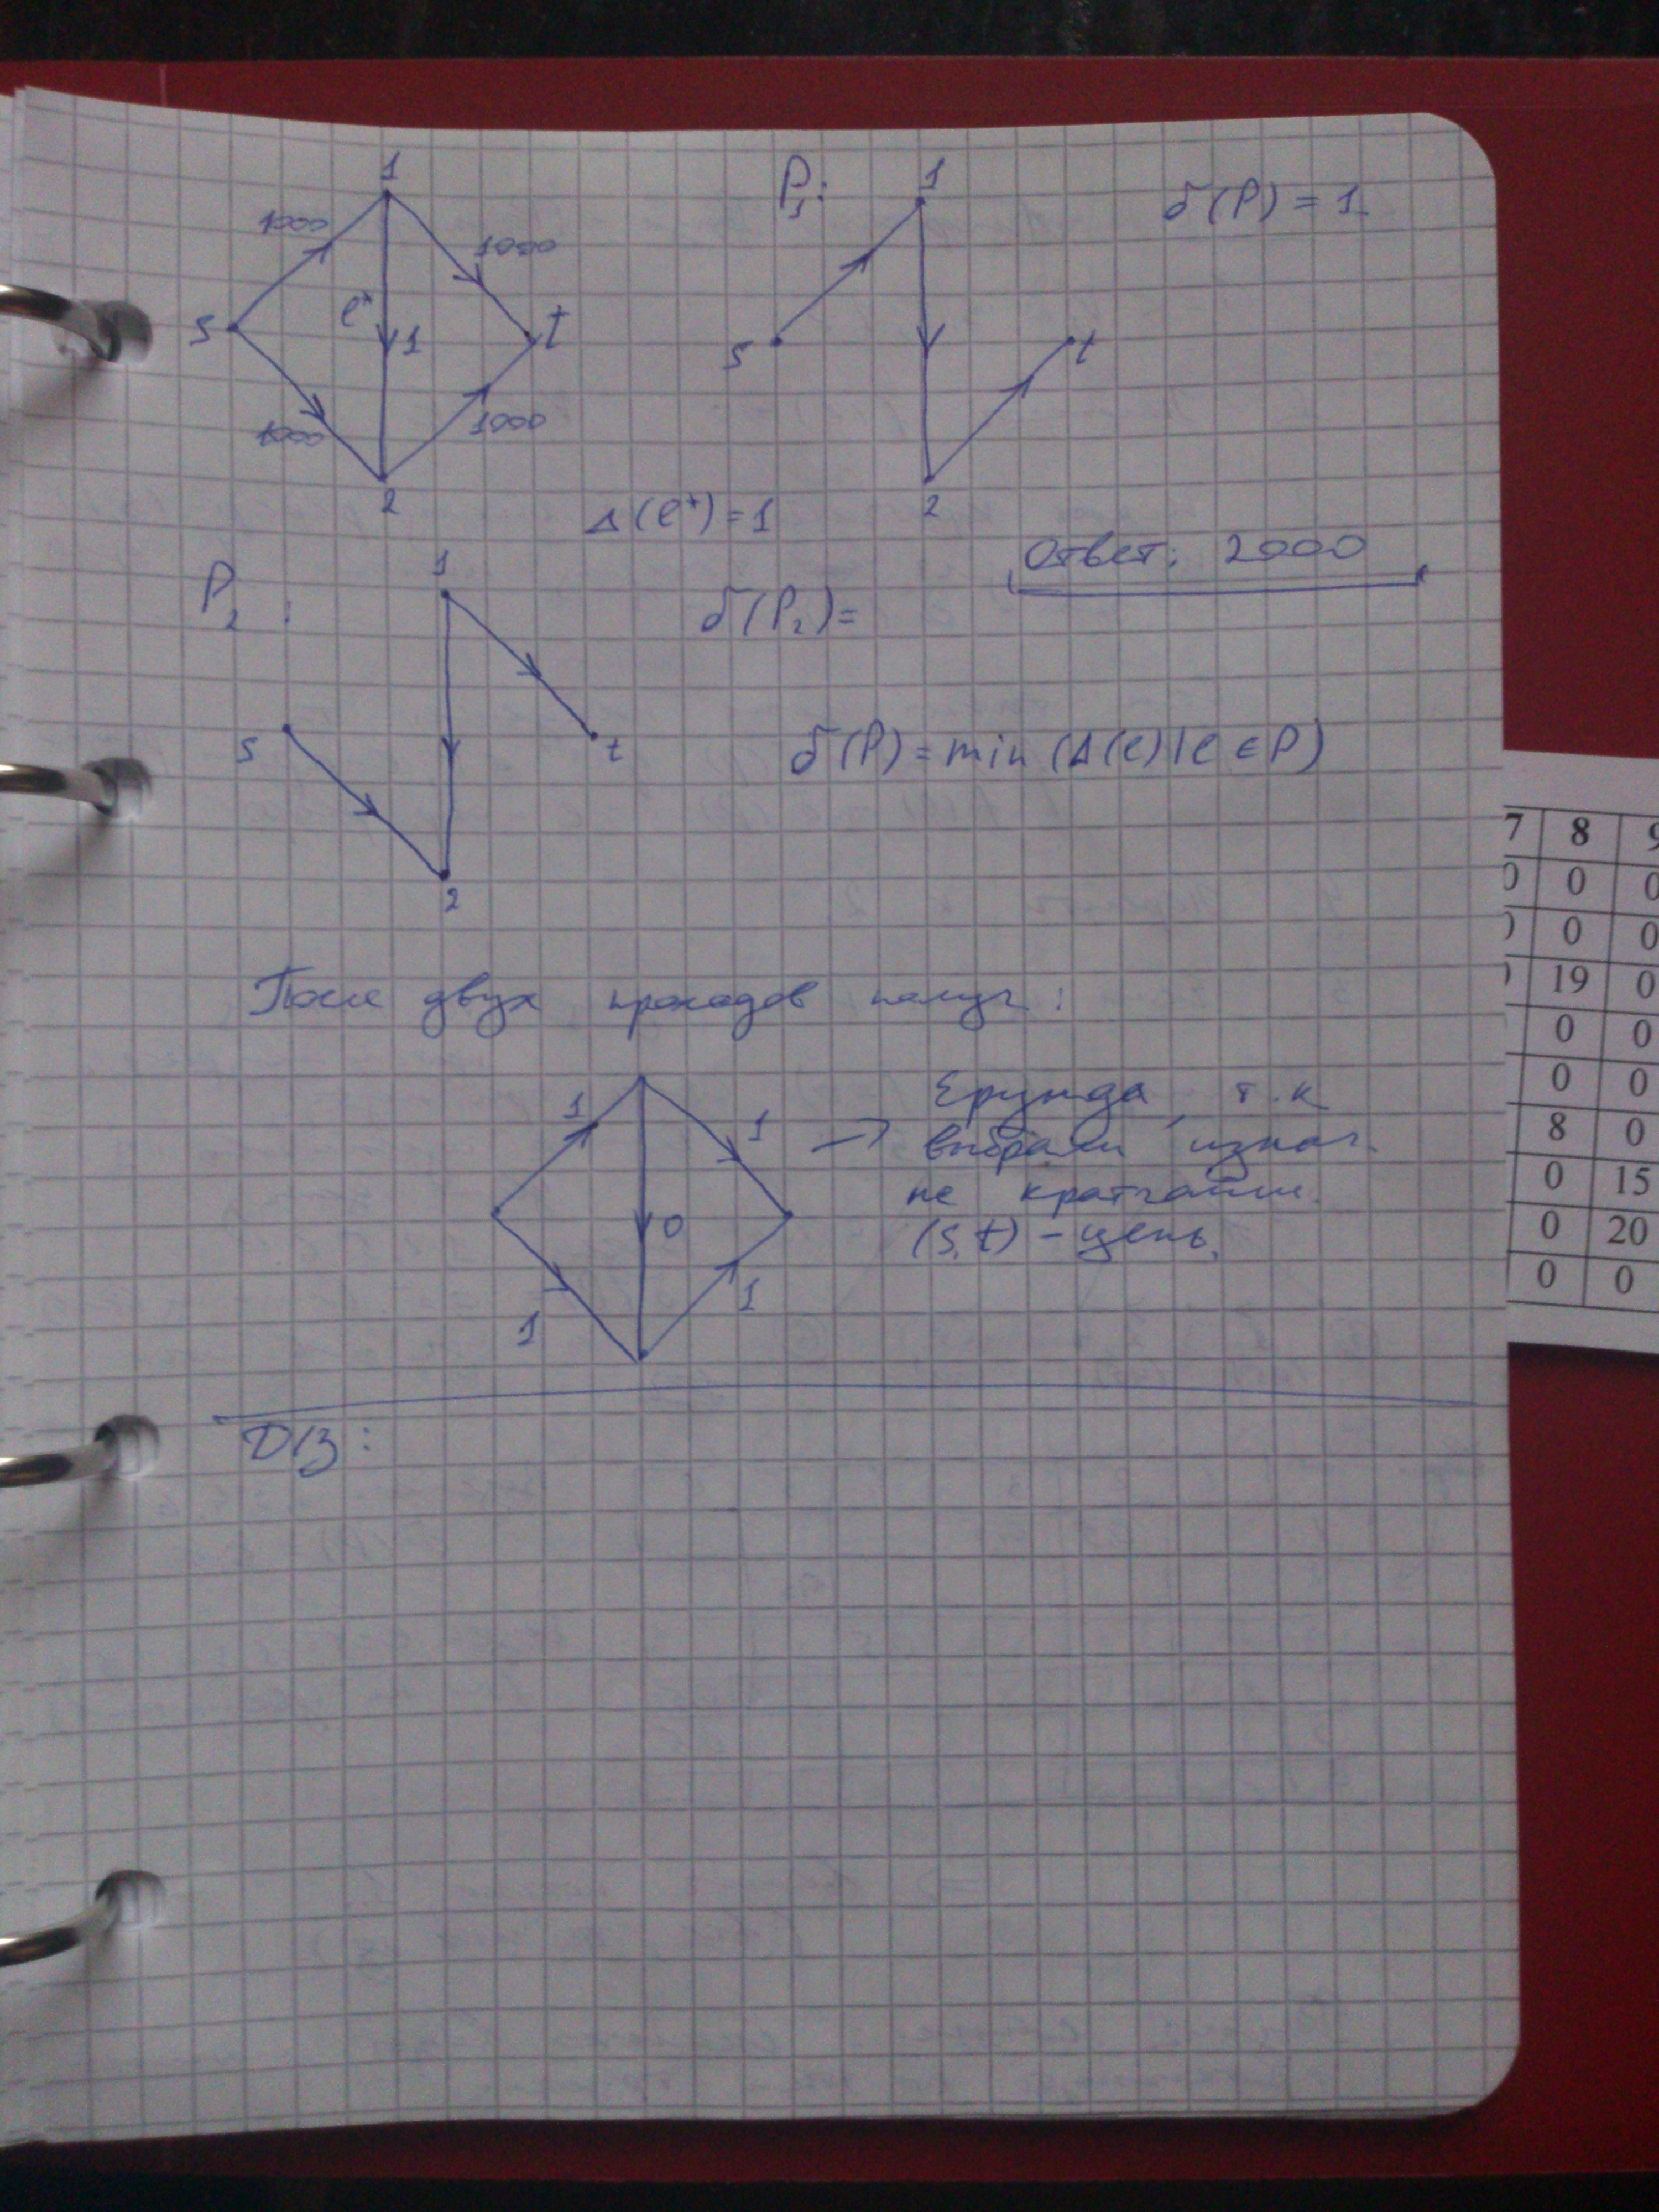 1
1000
1000
e*
1
s
t
1000
1000
2
P₁:
1
s
t
2
δ(P) = 1
Δ(e*) = 1
Ответ: 2000
P₂ :
1
s
t
2
δ(P₂) =
δ(P) = min (Δ(e) | e ∈ P)
После двух проходов получ:
1
1
0
1
1
→ Ерунда, т.к
выбрали изнач.
не кратчайш.
(s,t) – цепь.
Д/З:
7 8 9
0 0 0
0 0
19 0
0 0
0 0
8 0
0 15
0 20
0 0